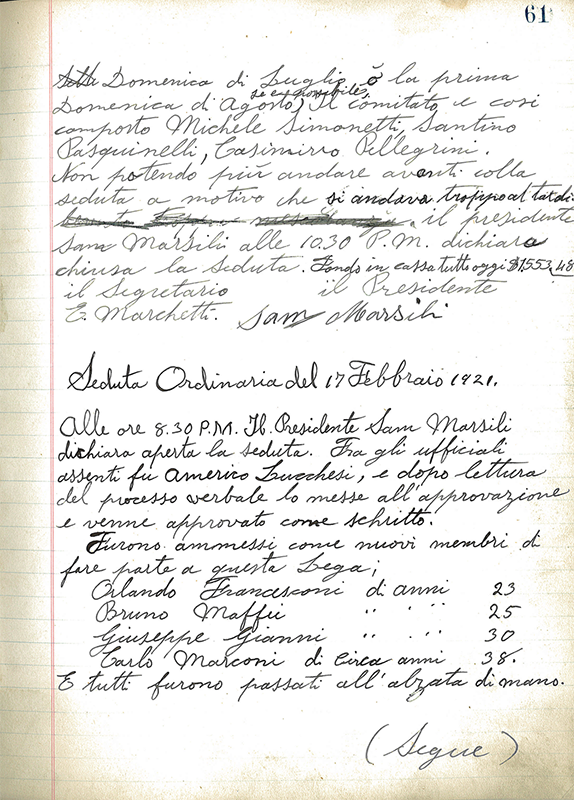 61
Domenica di Luglio, o la prima
se è possibile,
Domenica di Agosto, Il comitato e cosi
composto Michele Simonetti, Santino
Pasquinelli, Casimirro Pellegrini.
Non potendo piùr andare avanti colla
seduta a motivo che si andava troppo al tardi
il presidente
Sam Marsili alle 10.30 P.M. dichiara
chiusa la seduta. Fondo in cassa tutto oggi $1553,48
il Segretario il Presidente
E. Marchetti. Sam Marsili
Seduta Ordinaria del 17 Febbraio 1921.
Alle ore 8.30 P.M. Il Presidente Sam Marsili
dichiara aperta la seduta. Fra gli ufficiali
assenti fu Americo Lucchesi, e dopo lettura
del processo verbale lo messe all'approvazione
e venne approvato come schritto.
Furono ammessi come nuovi membri di
fare parte a questa Lega;
Orlando Francesconi di anni 23
Bruno Maffii " " " 25
Giuseppe Gianni " " " 30
Carlo Marconi di circa anni 38.
E tutti furono passati all'alzata di mano.
(Segue)